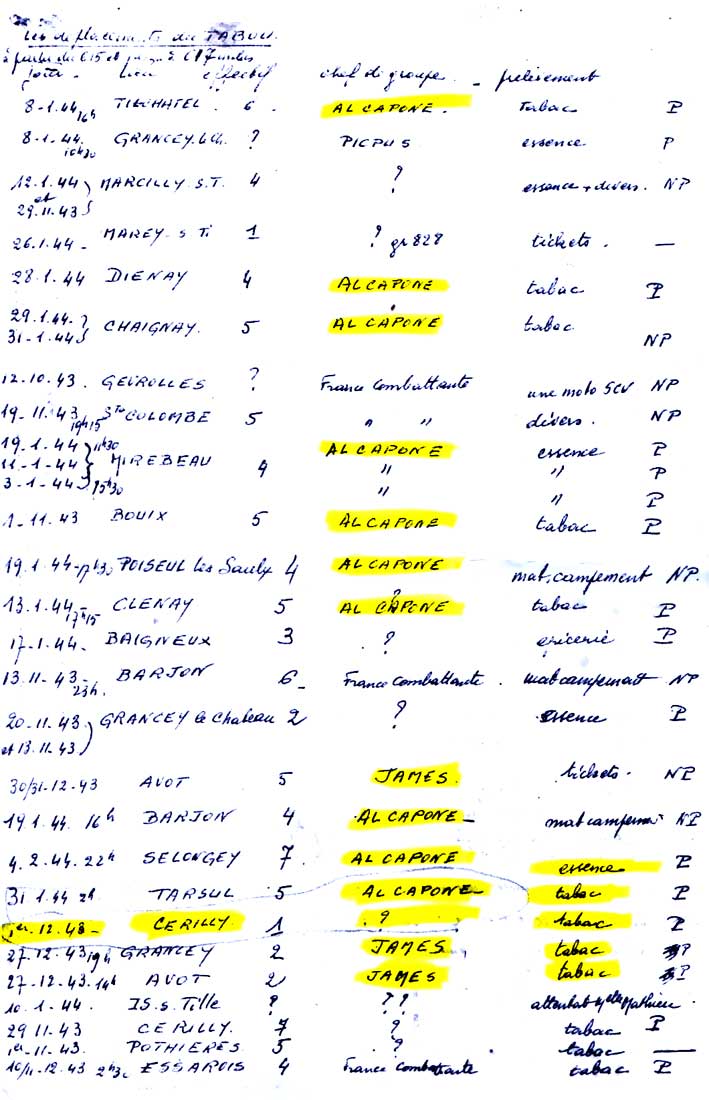 Les déplacements du TABOU.
à partir du 615 et jusqu'à 617
date. lieu effectif chef de groupe. - prélèvement
8-1.44 16h TILCHATEL. 6. AL CAPONE. Tabac P
8-1-44. 16h30 GRANCEY. le Ch. ? PICPUS essence P
12.1.44 et 29.11.43 MARCILLY. S.T. 4 ? essence + divers. NP
26.1.44 - MAREY- S Ti 1 ? gr 828 tickets. —
28.1.44 DIENAY 4 AL CAPONE tabac P
29.1.44.? 31-1.44 CHAIGNAY. 5 AL CAPONE tabac NP
12.10.43. GEVROLLES ? France Combattante une moto 5CV NP
19-11.43 19h15 Ste COLOMBE 5 " " divers. NP
19.1.44 11h30 AL CAPONE essence P
11-1-44 MIREBEAU 4 " " P
3-1-44 15h30 " " P
1-11.43 BOUIX 5 AL CAPONE tabac P
19.1.44- POISEUL les Saulx 4 AL CAPONE mat. campement NP.
13.1.44 - 17h15 CLENAY 5 ? AL CAPONE tabac P
17-1.44- BAIGNEUX 3 ? epicerie P
13.11-43- 23h. BARJON 6- France Combattante. mat campement NP
20-11.43. et 13.11.43 GRANCEY le Chateau 2 ? essence P
30/31-12-43 AVOT 5 JAMES. tickets. NP
19.1.44. 16h BARJON 4 AL CAPONE - mat campemt NP
4.2.44. 22h SELONGEY 7 AL CAPONE essence P
31 1.44 2h TARSUL 5 AL CAPONE - tabac P
1er.12.43 - CERILLY. 1 ? tabac P
27.12.43 19h GRANCEY 2 JAMES tabac P
27-12-43. 14h AVOT 2 JAMES tabac P
10.1-44. IS. s. Tille ? ?? attentat Melle Mathieu.
29 11-43 CERILLY. 7 ? tabac P
1er-11-43. POTHIERES. 5 ? tabac —
10/11-12-43 ESSAROIS 4 France combattante tabac P